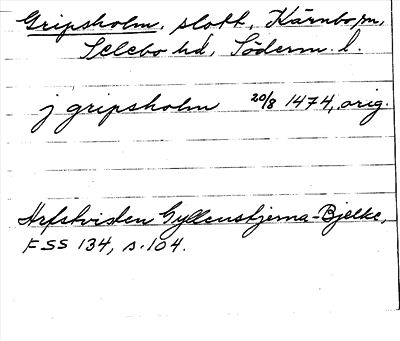 Gripsholm, slott, Kärnbo sn,
Selebo hd, Söderm. l.
j gripsholm 20/8 1474, orig.
Arfstviden Gyllenstjerna-Bjelke,
FSS 134, s. 104.